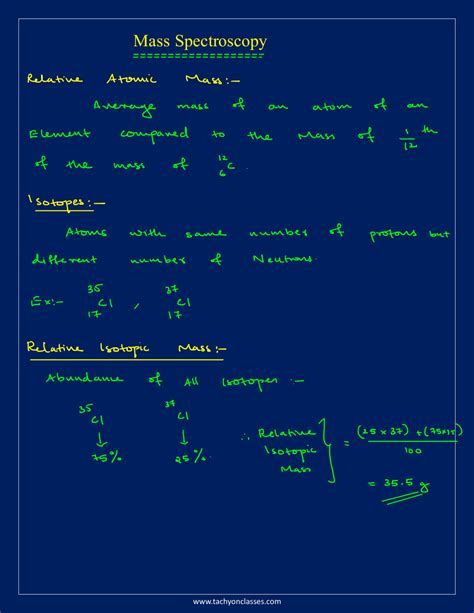 Mass Spectroscopy
Relative Atomic Mass:-
Average mass of an atom of an
Element compared to the Mass of 1/12 th
of the mass of ¹²₆C.
Isotopes:-
Atoms with same number of protons but
different number of Neutrons.
Ex:- ³⁵₁₇Cl , ³⁷₁₇Cl
Relative Isotopic Mass:-
Abundance of All Isotopes:-
³⁵Cl ³⁷Cl
↓ ↓
75% 25%
∴ Relative Isotopic Mass } = (25 x 37) + (75x35) / 100
= 35.5 g
www.tachyonclasses.com